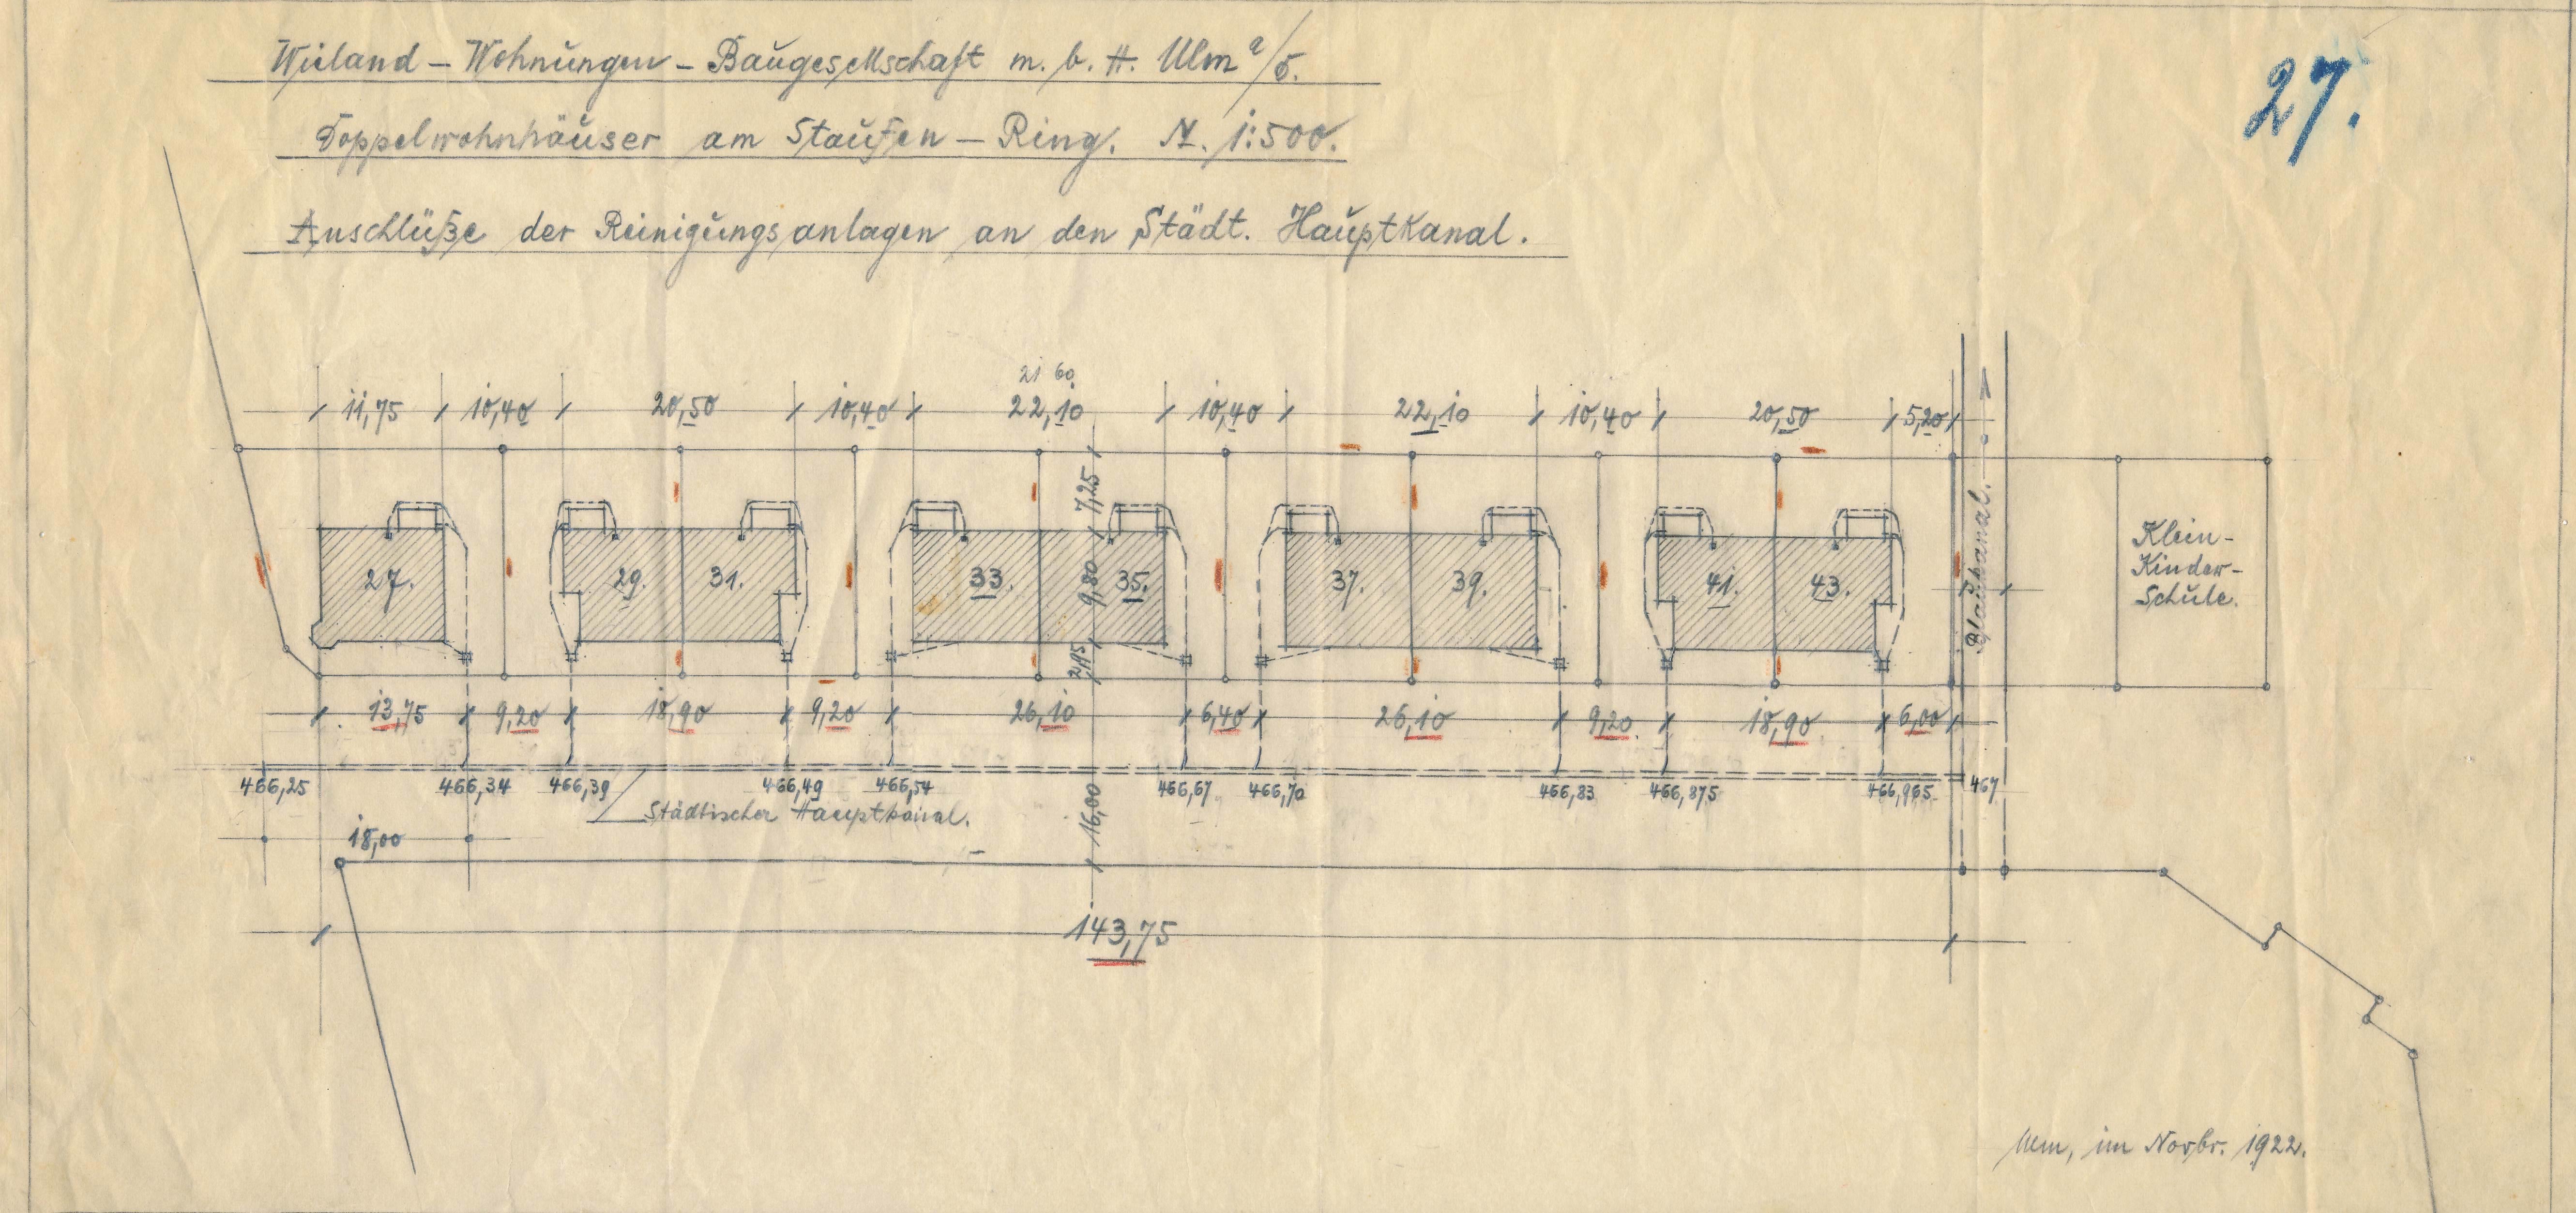 27.
Wieland – Wohnungen – Baugesellschaft m. b. H. Ulm a/D.
Doppelwohnhäuser am Staufen – Ring. M. 1:500.
Anschlüße der Reinigungsanlagen an den Städt. Hauptkanal.
21 60
11,75 10,40 20,50 10,40 22,10 10,40 22,10 10,40 20,50 5,20
7,25
27. 29. 31. 33. 9,80 35. 37. 39. 41. 43.
Blaukanal.
Klein-
Kinder-
Schule.
2,15
13,75 9,20 18,90 9,20 26,10 6,40 26,10 9,20 18,90 6,00
466,25 466,34 466,39 466,49 466,54 466,67 466,70 466,83 466,875 466,965 467
Städtischer Hauptkanal.
16,00
18,00
143,75
Ulm, im Novbr. 1922.